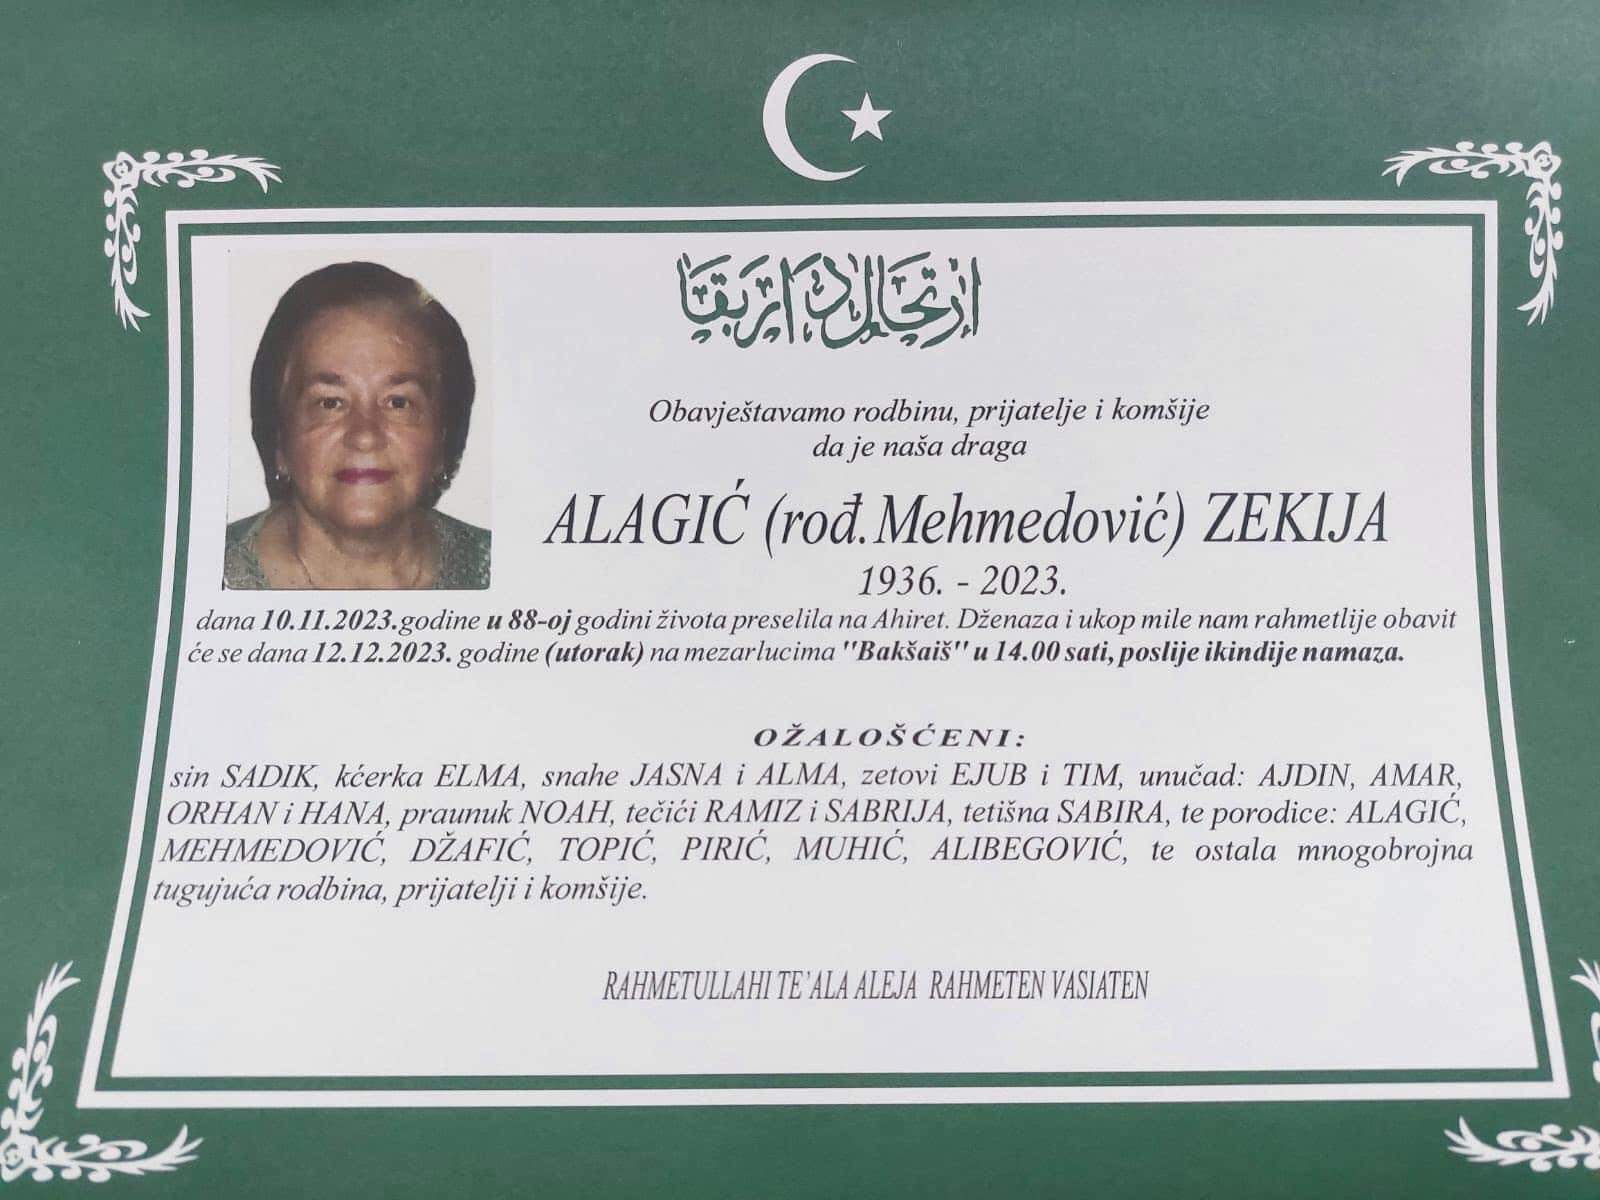 ارتحال دار بقا
Obavještavamo rodbinu, prijatelje i komšije
da je naša draga
ALAGIĆ (rođ.Mehmedović) ZEKIJA
1936. - 2023.
dana 10.11.2023.godine u 88-oj godini života preselila na Ahiret. Dženaza i ukop mile nam rahmetlije obavit
će se dana 12.12.2023. godine (utorak) na mezarlucima "Bakšaiš" u 14.00 sati, poslije ikindije namaza.
OŽALOŠĆENI:
sin SADIK, kćerka ELMA, snahe JASNA i ALMA, zetovi EJUB i TIM, unučad: AJDIN, AMAR,
ORHAN i HANA, praunuk NOAH, tečići RAMIZ i SABRIJA, tetišna SABIRA, te porodice: ALAGIĆ,
MEHMEDOVIĆ, DŽAFIĆ, TOPIĆ, PIRIĆ, MUHIĆ, ALIBEGOVIĆ, te ostala mnogobrojna
tugujuća rodbina, prijatelji i komšije.
RAHMETULLAHI TE'ALA ALEJA RAHMETEN VASIATEN